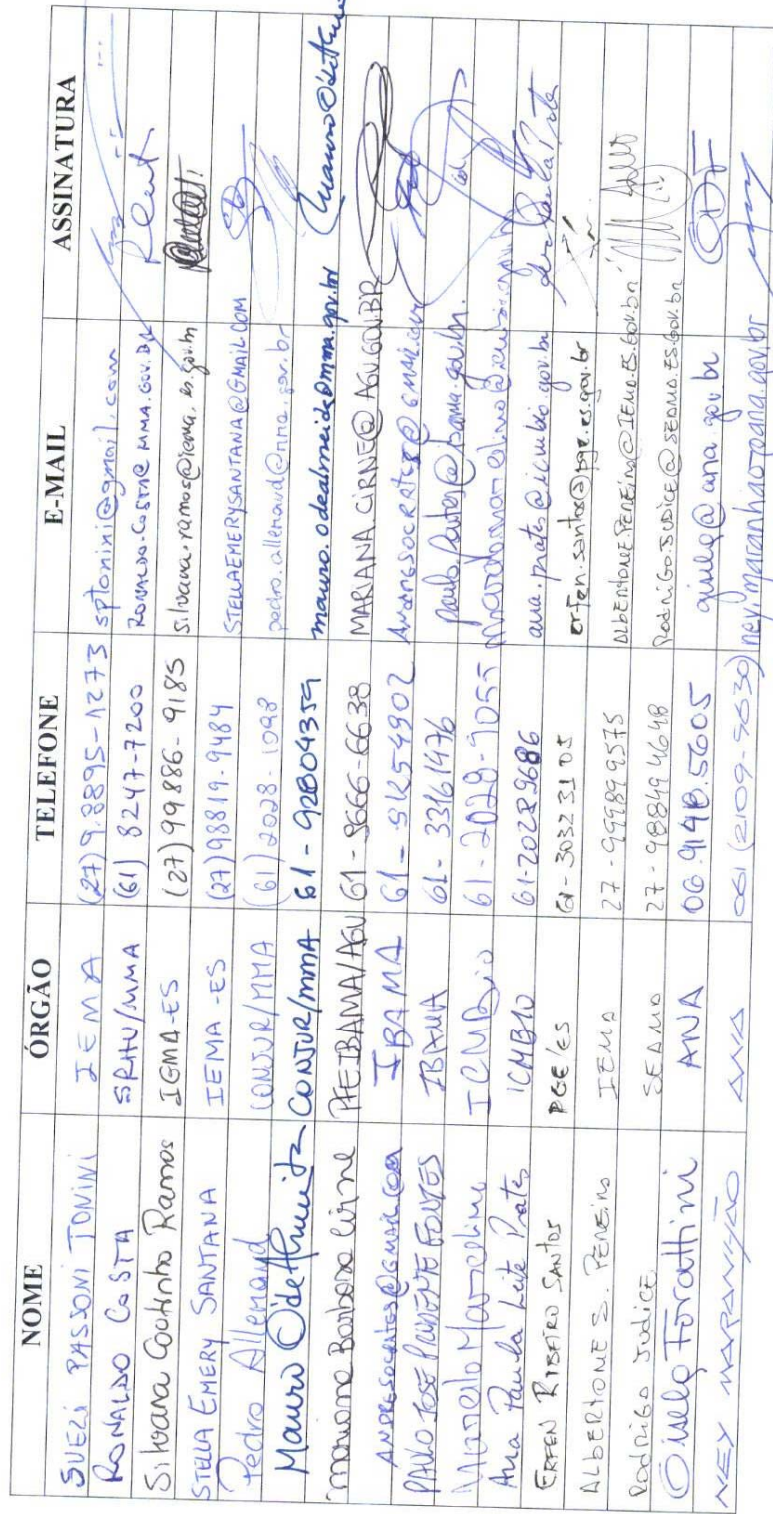 NOME ÓRGÃO TELEFONE E-MAIL ASSINATURA
SUELI PASSONI TONINI IEMA (27) 9.8895-1273 sptonini@gmail.com
RONALDO COSTA SRHU/MMA (61) 8247-7200 RONALDO.COSTA@MMA.GOV.BR
Silvana Coutinho Ramos IEMA-ES (27) 99886-9185 silvana.ramos@iema.es.gov.br
STELLA EMERY SANTANA IEMA-ES (27) 98819-9484 STELLAEMERYSANTANA@GMAIL.COM
Pedro Allemand CONJUR/MMA (61) 2028-1098 pedro.allemand@mma.gov.br
Mauro O'de Almeida CONJUR/MMA 61-92804359 mauro.odealmeida@mma.gov.br Mauro O'de Almeida
Mariana Barbosa Cirne PFE IBAMA/AGU 61-9666-6638 MARIANA.CIRNE@AGU.GOV.BR
ANDRESOCRATES@GMAIL.COM IBAMA 61- ANDRESOCRATES@GMAIL.COM
PAULO JOSÉ FONTES IBAMA 61-33161476 paulo.fontes@ibama.gov.br.
Marcelo Marcelino ICMBio 61-2028-9055
Ana Paula Leite Prates ICMBIO 61-20289686 ana.prates@icmbio.gov.br Ana Paula Prates
ERFEN RIBEIRO SANTOS PGE/ES 61-30323105 erfen.santos@pge.es.gov.br
ALBERTONE S. PEREIRA IEMA 27-999899575 ALBERTONE.PEREIRA@IEMA.ES.GOV.BR
RODRIGO JUDICE SEAMA 27-988494648 RODRIGO.JUDICE@SEAMA.ES.GOV.BR
Gisela Forattini ANA 06.9148.5605 gisela@ana.gov.br
NEY MARANHÃO ANA 061 (2109-5630) ney.maranhao@ana.gov.br